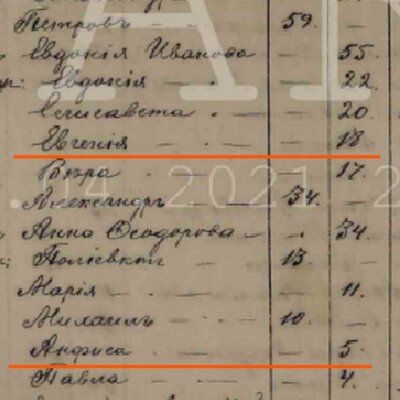 Петровъ — 59.
Евдокія Иванова 55.
Евдокія — 22.
Елисавета — 20.
Евгенія — 18
Вѣра — 17.
Александръ 34.
Анна Ѳеодорова — 34
Поліевктъ — 13.
Марія — 11.
Михаилъ — 10.
Анфиса — 5.
Павла — 4.
04 2021 2